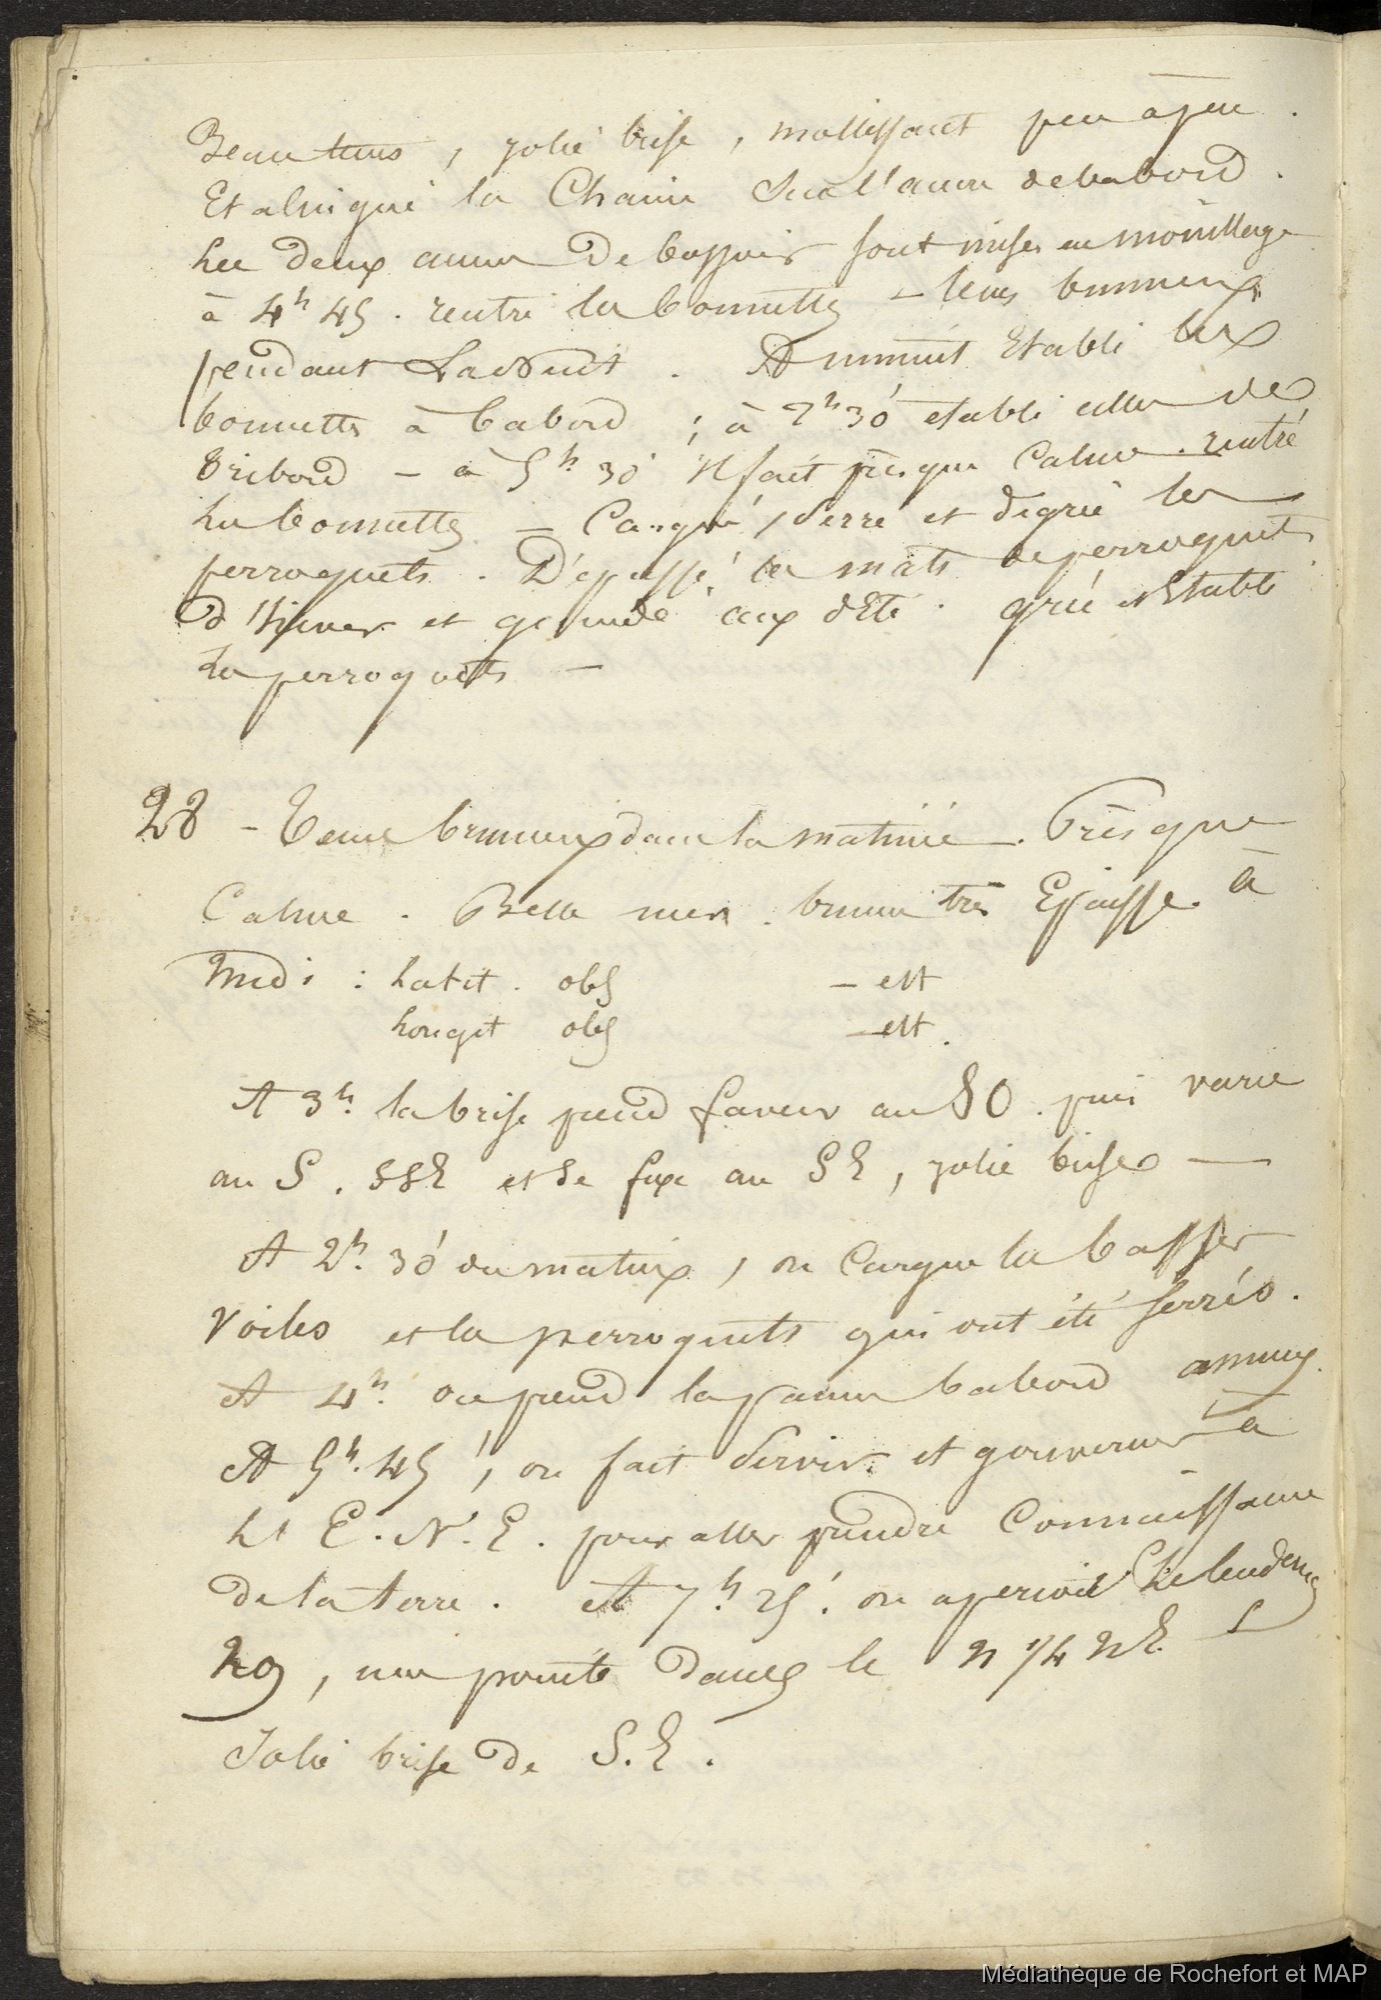 Beau tems, jolie brise, mollissant peu à peu.
Etalingué la Chaine Sur l'ancre de babord.
Les deux ancres De bossoir sont mises en mouillage
à 4h 45. rentré les bonnettes – tems brumeux
pendant La Nuit. A minuit Etabli les
bonnettes à babord ; à 2h 30' etabli celles de
Tribord – à 5h. 30' il fait presque Calme. rentré
les bonnettes – Cargué, Serré et dégréé les
perroquets. Dépassé les mâts de perroquets
d'hiver et guindé ceux d'Eté. gréé et Etabli
les perroquets –
28 – Tems brumeux dans la matinée. Presque
Calme. Belle mer. brume très Epaisse. à
Midi : Latit. obs – est
Longit obs – est.
A 3h. la brise prend faveur au SO. puis varie
au S. SSE et Se fixe au SE, jolie brise –
A 2h. 30' du matin, on Cargue les basses
Voiles et les perroquets qui ont été serrés.
A 4h. on prend la panne babord amures.
A 5h. 45', on fait Servir et gouverner à
L'E.N.E. pour aller prendre Connaissance
De la terre. A 7h. 25'. on aperçoit Le lendemain
29, une pointe dans le N 1/4 NE. –
Jolie brise de S.E.
Médiathèque de Rochefort et MAP